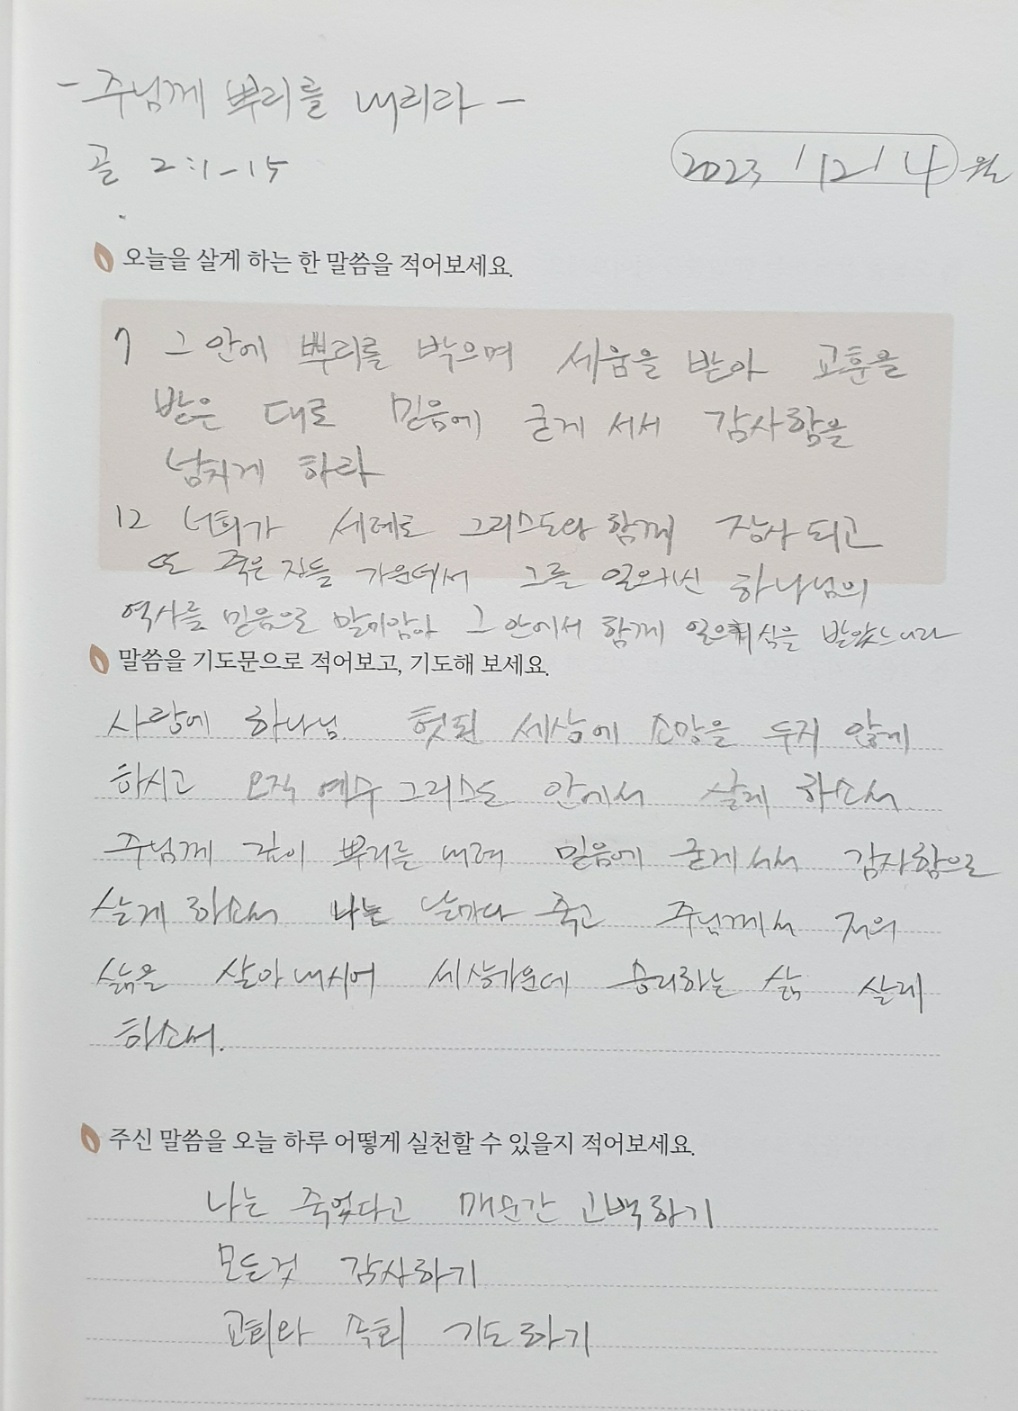 - 주님께 뿌리를 내리라 -
골 2:1-15
2023 / 12 / 4 월
오늘을 살게 하는 한 말씀을 적어보세요.
7 그 안에 뿌리를 박으며 세움을 받아 교훈을
받은 대로 믿음에 굳게 서서 감사함을
넘치게 하라
12 너희가 세례로 그리스도와 함께 장사 되고
또 죽은 자들 가운데서 그를 일으키신 하나님의
역사를 믿음으로 말미암아 그 안에서 함께 일으키심을 받았느니라
말씀을 기도문으로 적어보고, 기도해 보세요.
사랑에 하나님 헛된 세상에 소망을 두지 않게
하시고 오직 예수 그리스도 안에서 살게 하소서
주님께 깊이 뿌리를 내려 믿음에 굳게 서서 감사함으로
살게 하소서 나는 날마다 죽고 주님께서 저의
삶을 살아내시어 세상가운데 승리하는 삶 살게
하소서.
주신 말씀을 오늘 하루 어떻게 실천할 수 있을지 적어보세요.
나는 죽었다고 매순간 고백하기
모든것 감사하기
교회와 속회 기도하기